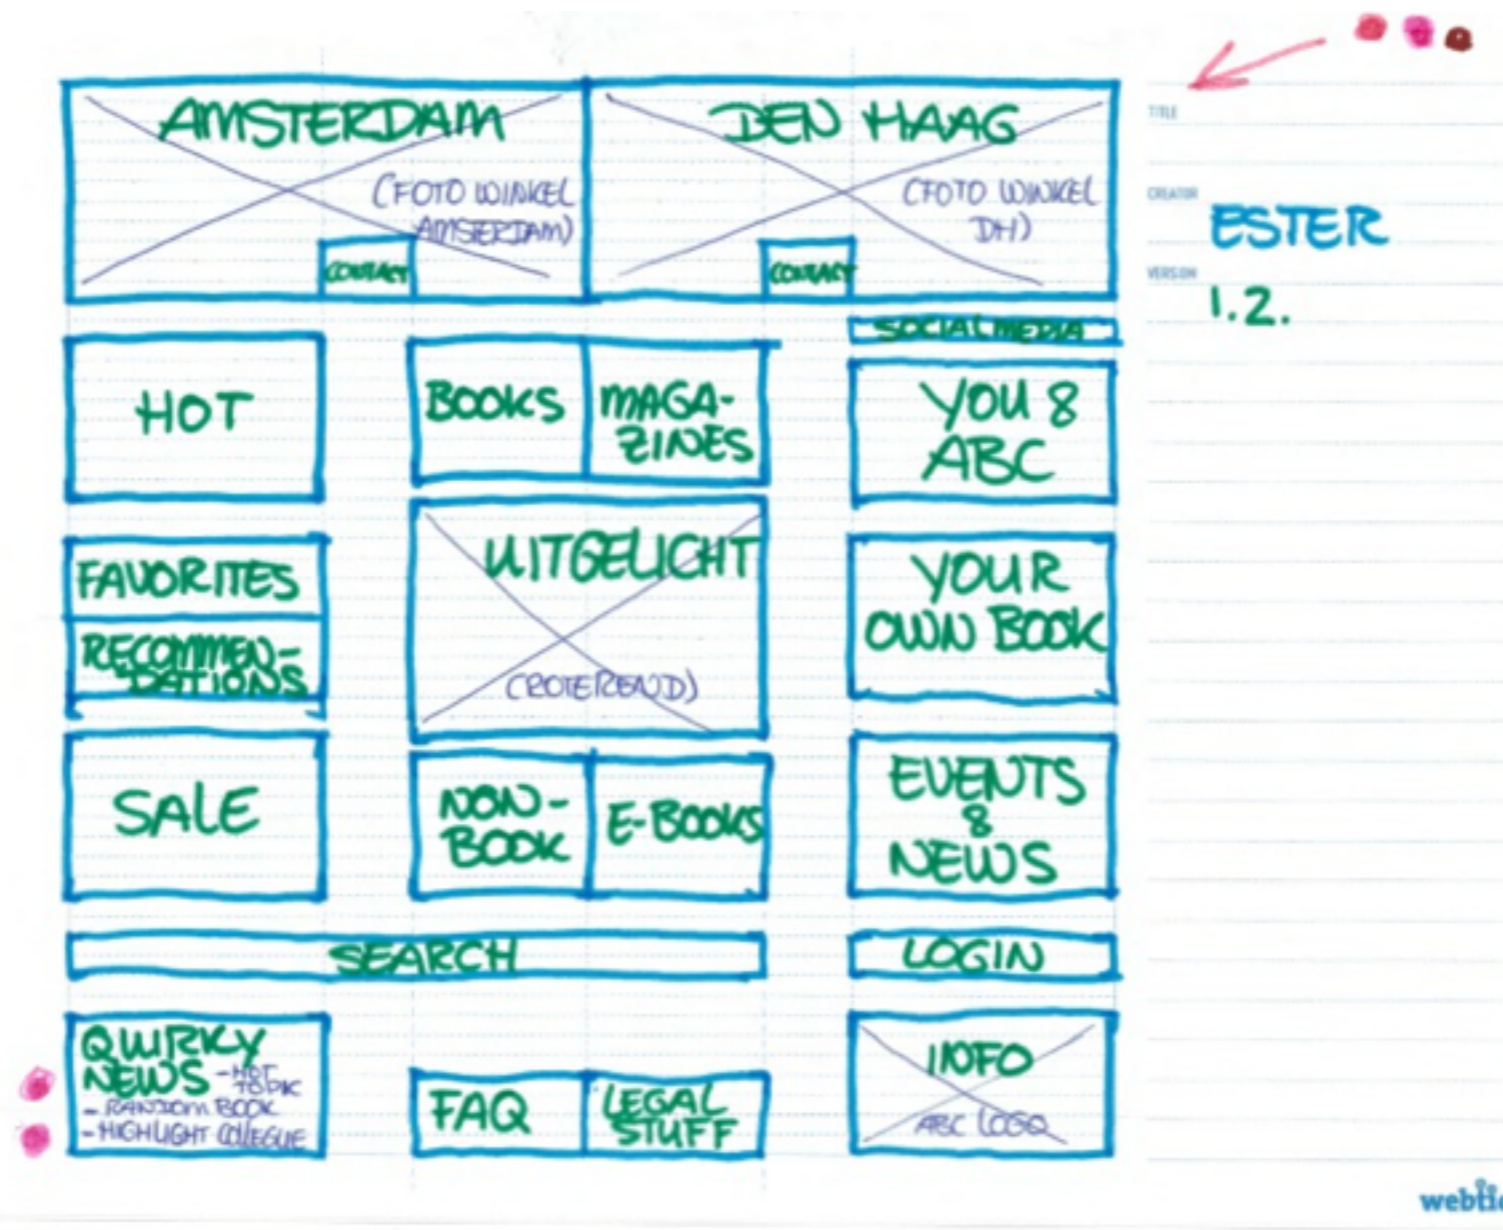 AMSTERDAM
(FOTO WINKEL
AMSTERDAM)
CONTACT
DEN HAAG
(FOTO WINKEL
DH)
CONTACT
TITLE
CREATOR
ESTER
VERSION
1.2.
SOCIAL MEDIA
HOT
BOOKS
MAGA-
ZINES
YOU &
ABC
FAVORITES
RECOMMEN-
DATIONS
UITGELICHT
(ROTEREND)
YOUR
OWN BOOK
SALE
NON-
BOOK
E-BOOKS
EVENTS
&
NEWS
SEARCH
LOGIN
QUIRKY
NEWS - HOT
TOPIC
- RANDOM BOOK
- HIGHLIGHT COLLEGUE
FAQ
LEGAL
STUFF
INFO
ABC LOGO